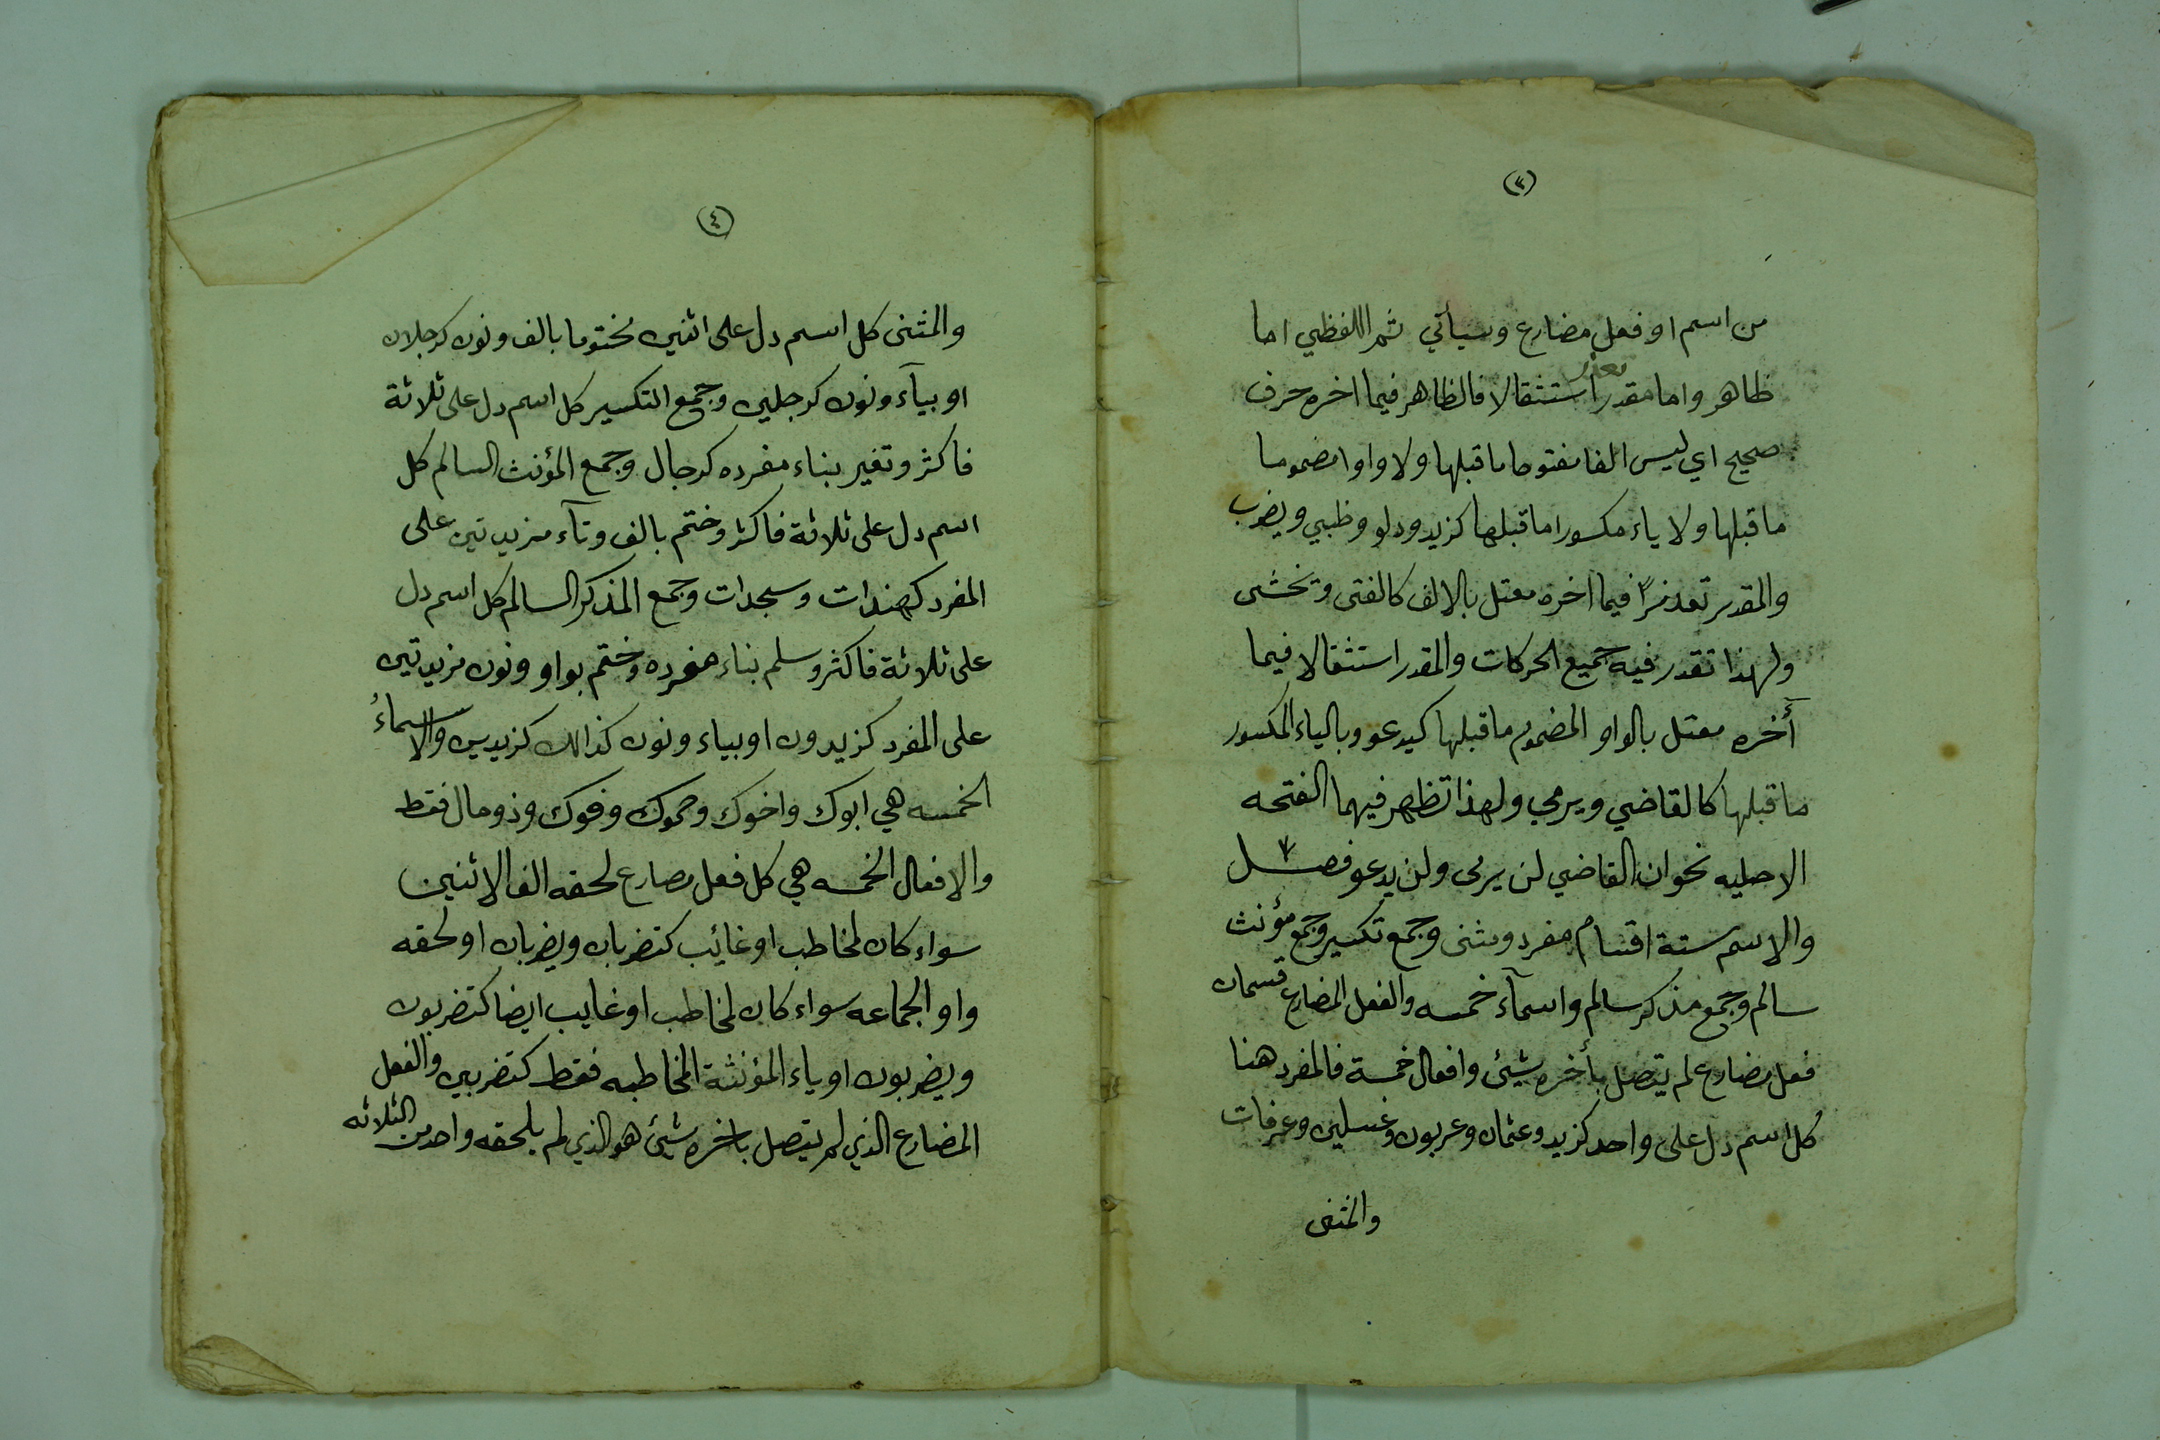 (٣)
من اسم او فعل مضارع وسيأتي ثم اللفظي اما
تعذر
ظاهر واما مقدر استثقالا فالظاهر فيما اخره حرف
صحيح اي ليس الفا مفتوحا ما قبلها ولا واوا مضموما
ما قبلها ولا ياء مكسورا ما قبلها كزيد ودلو وظبي ويضرب
والمقدر تعذرًا فيما اخره معتل بالالف كالفتى وتخشى
ولهذا تقدر فيه جميع الحركات والمقدر استثقالا فيما
أخره معتل بالواو المضموم ما قبلها كيدعو وبالياء المكسور
ما قبلها كالقاضي ويرمي ولهذا تظهر فيهما الفتحه
الاصليه نحو ان القاضي لن يرمى ولن يدعو فصل
والاسم ستة اقسام مفرد ومثنى وجمع تكسير وجمع مؤنث
سالم وجمع مذكر سالم واسمآء خمسه والفعل المضارع قسمان
فعل مضارع لم يتصل بأخره شيئ وافعال خمسة فالمفرد هنا
كل اسم دل على واحد كزيد وعثمان وعربون وغسلين وعرفات
والمثنى
(٤)
والمثنى كل اسم دل على اثنين مختوما بالف ونون كرجلان
او بيآء ونون كرجلين وجمع التكسير كل اسم دل على ثلاثة
فاكثر وتغير بناء مفرده كرجال وجمع المؤنث السالم كل
اسم دل على ثلاثة فاكثر وختم بالف وتآء مزيدتين على
المفرد كهندات وسجدات وجمع المذكر السالم كل اسم دل
على ثلاثة فاكثر وسلم بناء مفرده وختم بواو ونون مزيدتين
على المفرد كزيدون او بياء ونون كذالك كزيدين والاسماءُ
الخمسه هي ابوك واخوك وحموك وفوك وذو مال فقط
والافعال الخمسه هي كل فعل مضارع لحقه الف الاثنين
سواء كان لمخاطب او غائب كتضربان ويضربان او لحقه
واو الجماعه سواء كان لمخاطب او غايب ايضا كتضربون
ويضربون او ياء المؤنثة المخاطبه فقط كتضربين والفعل
المضارع الذي لم يتصل باخره شيئ هو الذي لم يلحقه واحد من الثلاثه